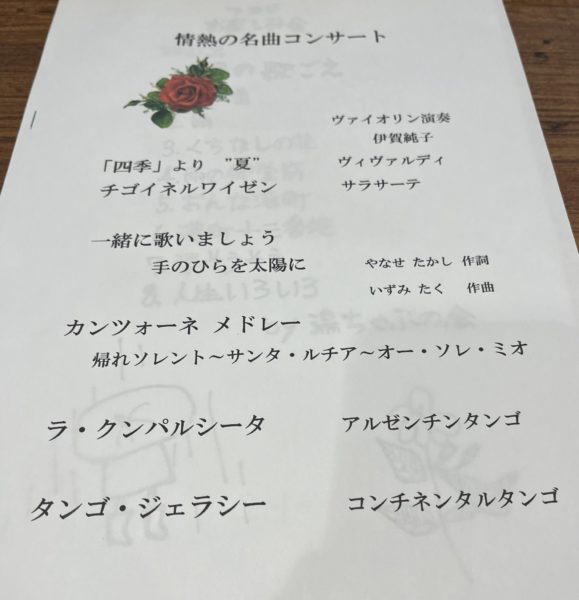 情熱の名曲コンサート
ヴァイオリン演奏
伊賀純子
「四季」より ”夏” ヴィヴァルディ
チゴイネルワイゼン サラサーテ
一緒に歌いましょう
手のひらを太陽に やなせ たかし 作詞
いずみ たく 作曲
カンツォーネ メドレー
帰れソレント～サンタ・ルチア～オー・ソレ・ミオ
ラ・クンパルシータ アルゼンチンタンゴ
タンゴ・ジェラシー コンチネンタルタンゴ
8.人生いろいろ